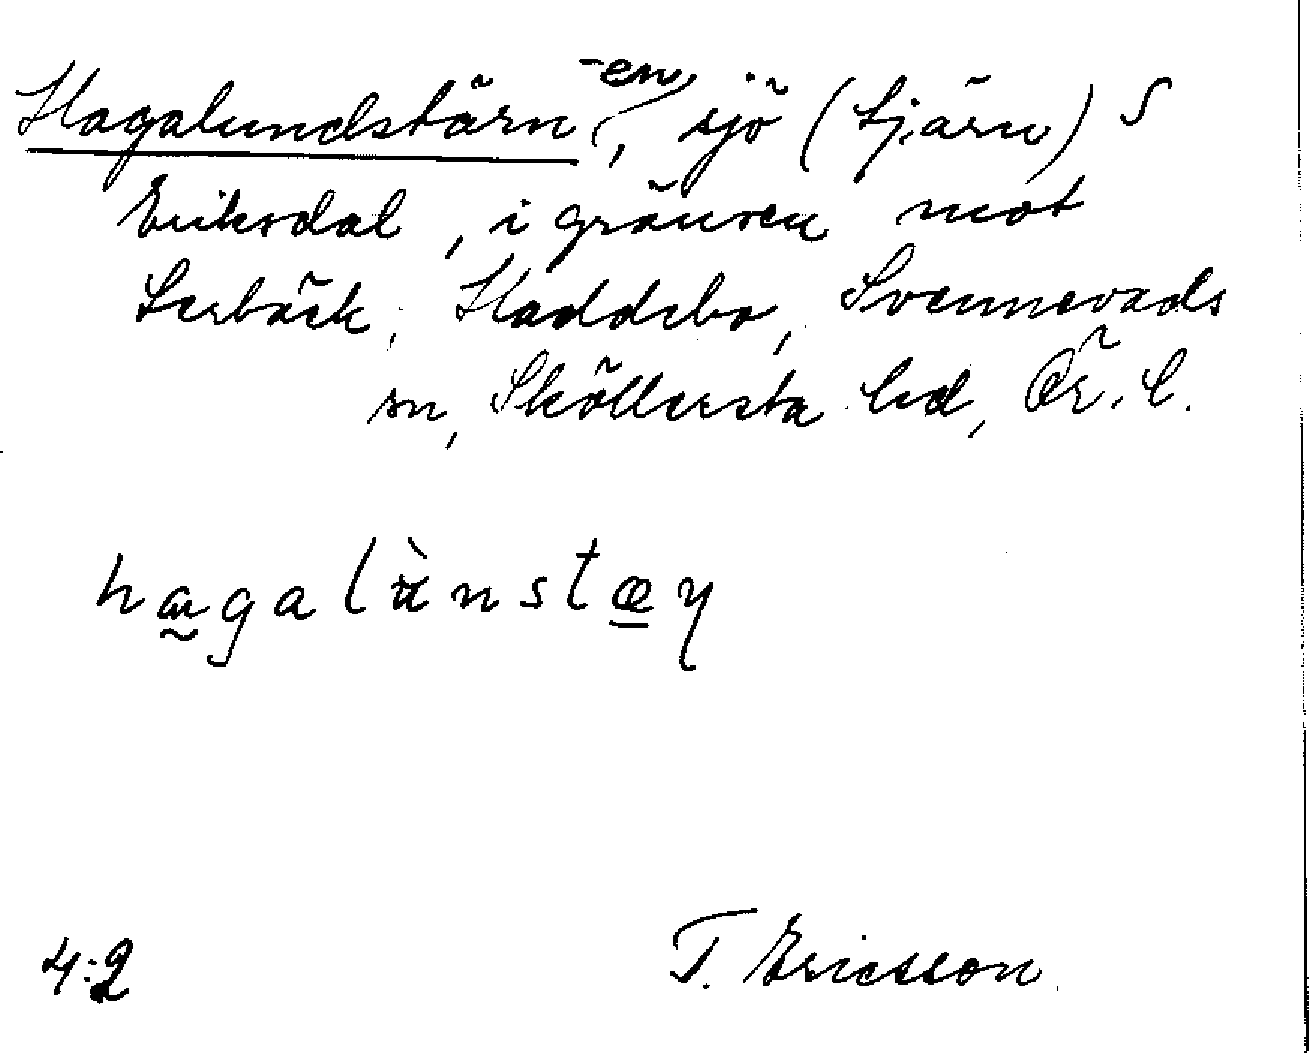 Hagalundstärn -en, sjö (tjärn) S
Eriksdal, i gränsen mot
Lerbäck, Haddebo, Svennevads
sn, Sköllersta hd, Ör. l.
hagalùnstæη
4:2
T. Ericsson